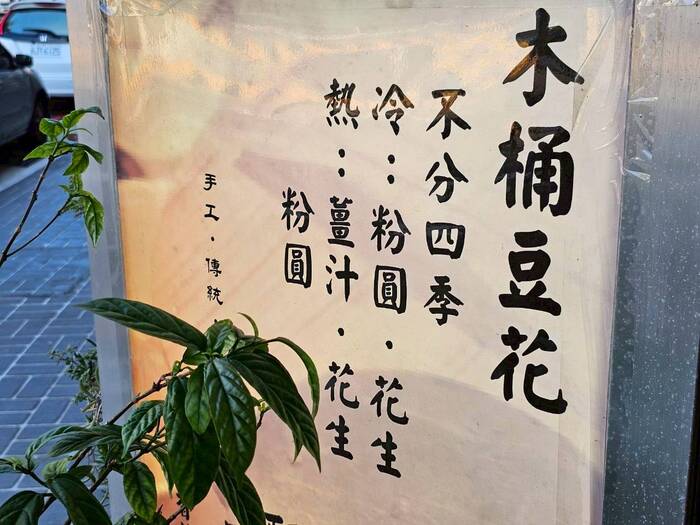 木桶豆花
不分四季
冷：粉圓・花生
熱：薑汁・花生
粉圓
手工・傳統